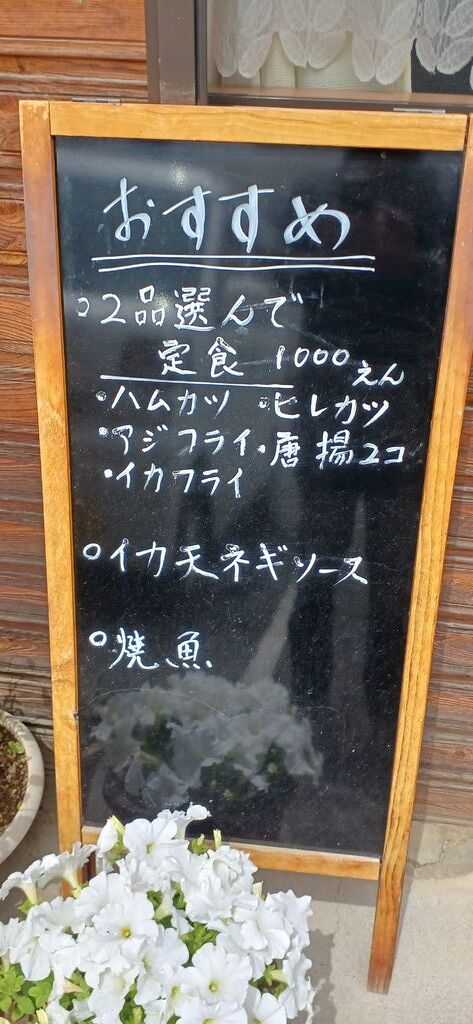 おすすめ
○2品選んで
定食 1000えん
・ハムカツ ・ヒレカツ
・アジフライ ・唐揚2コ
・イカフライ
○イカ天ネギソース
○焼魚